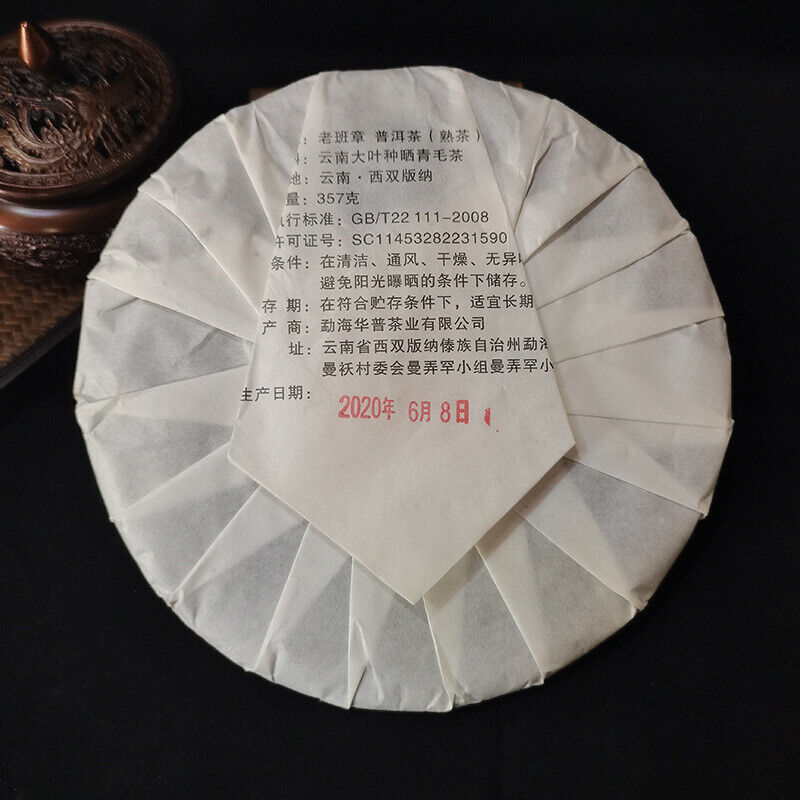 : 老班章 普洱茶(熟茶)
: 云南大叶种晒青毛茶
地: 云南·西双版纳
量: 357克
行标准: GB/T22 111-2008
许可证号: SC11453282231590
条件: 在清洁、通风、干燥、无异
避免阳光曝晒的条件下储存。
存 期: 在符合贮存条件下，适宜长期
产 商: 勐海华普茶业有限公司
址: 云南省西双版纳傣族自治州勐海
曼袄村委会曼弄罕小组曼弄罕小
生产日期:
2020年 6月 8日